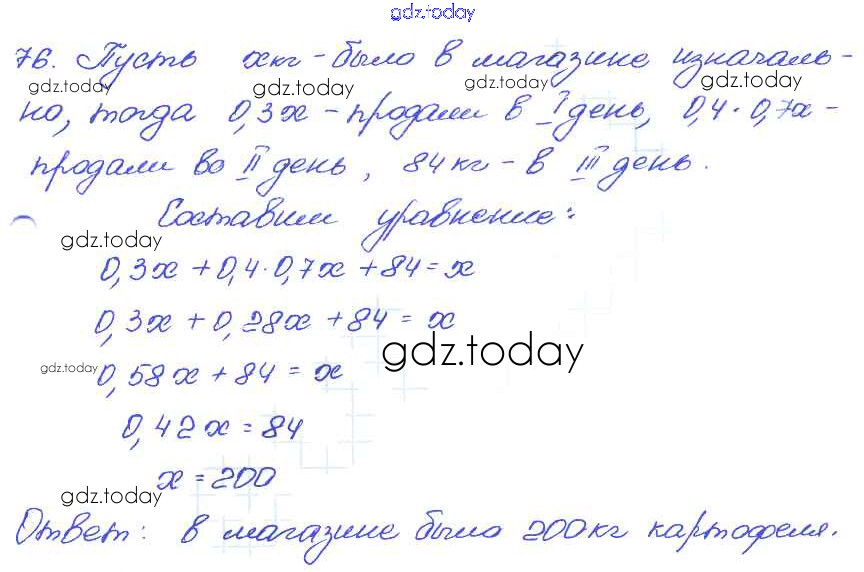 gdz.today
76. Пусть x кг - было в магазине изначаль-
gdz.today gdz.today gdz.today gdz.today
но, тогда 0,3x - продали в I день, 0,4·0,7x -
продали во II день, 84 кг - в III день.
Составим уравнение:
gdz.today
0,3x + 0,4·0,7x + 84 = x
0,3x + 0,28x + 84 = x
gdz.today
gdz.today 0,58x + 84 = x
0,42x = 84
x = 200
gdz.today
Ответ: в магазине было 200 кг картофеля.